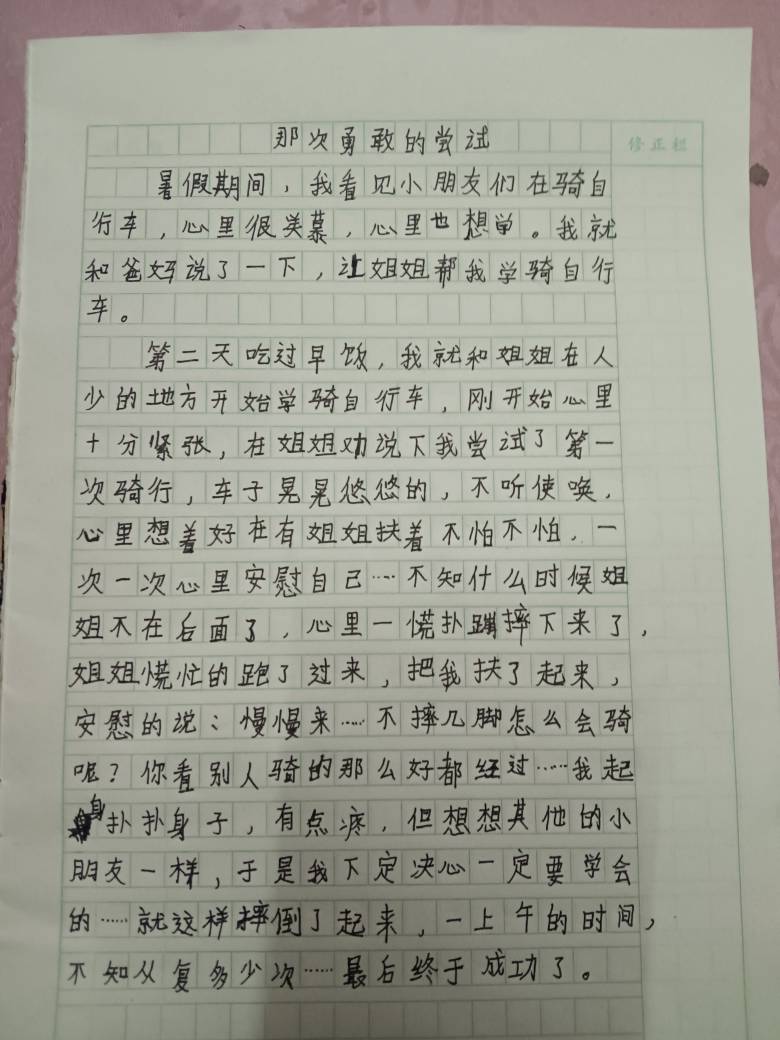 那次勇敢的尝试
修正栏
暑假期间，我看见小朋友们在骑自
行车，心里很羡慕，心里也想学。我就
和爸妈说了一下，让姐姐帮我学骑自行
车。
第二天吃过早饭，我就和姐姐在人
少的地方开始学骑自行车，刚开始心里
十分紧张，在姐姐劝说下我尝试了第一
次骑行，车子晃晃悠悠的，不听使唤，
心里想着好在有姐姐扶着不怕不怕，一
次一次心里安慰自己……不知什么时候姐
姐不在后面了，心里一慌扑蹦摔下来了，
姐姐慌忙的跑了过来，把我扶了起来，
安慰的说：慢慢来……不摔几脚怎么会骑
呢？你看别人骑的那么好都经过……我起
身扑扑身子，有点疼，但想想其他的小
朋友一样，于是我下定决心一定要学会
的……就这样摔倒了起来，一上午的时间，
不知从复多少次……最后终于成功了。